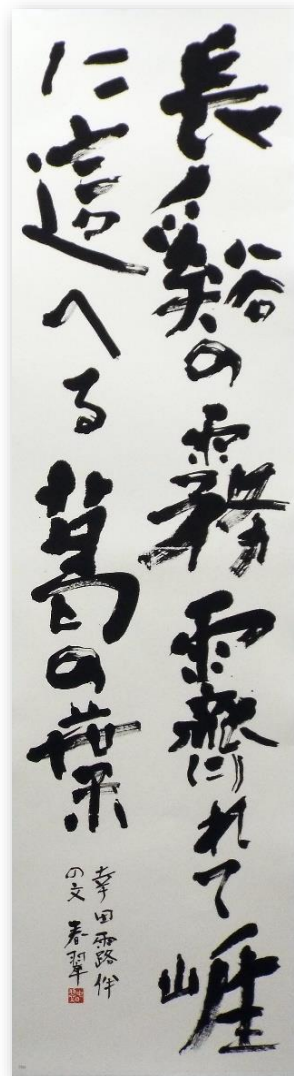 長谿の霧霽れて崕
に這へる葛の葉
幸田露伴
の文 春翠